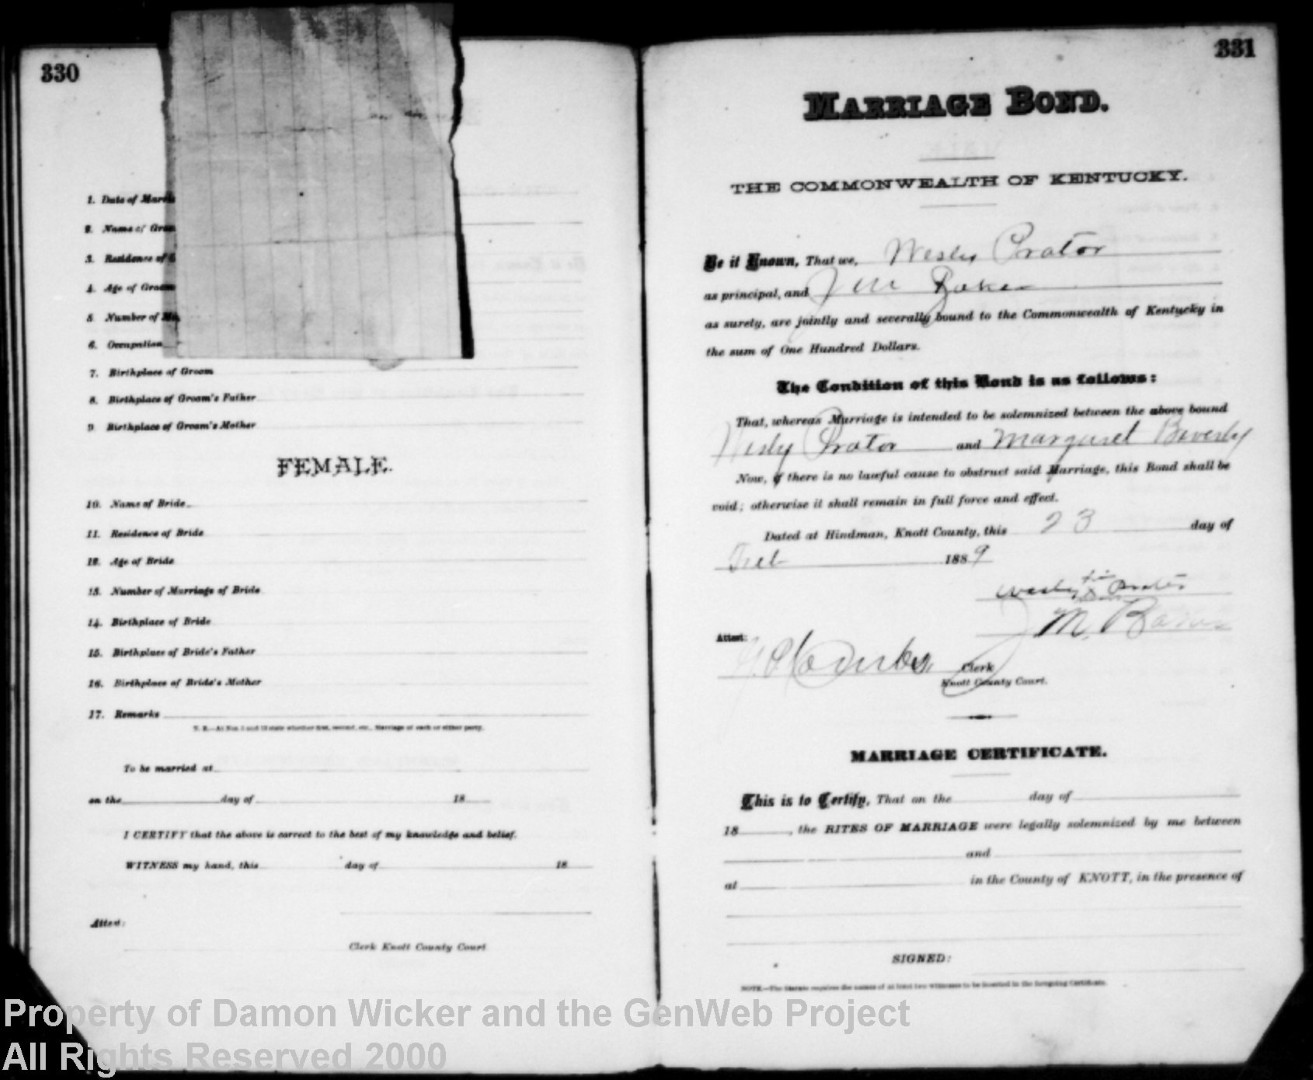 330
1. Date of Marri
2. Name of Groo
3. Residence of G
4. Age of Groom
5. Number of Ma
6. Occupation
7. Birthplace of Groom
8. Birthplace of Groom's Father
9. Birthplace of Groom's Mother
FEMALE.
10. Name of Bride
11. Residence of Bride
12. Age of Bride
13. Number of Marriage of Bride
14. Birthplace of Bride
15. Birthplace of Bride's Father
16. Birthplace of Bride's Mother
17. Remarks
N. B.—At Nos. 5 and 13 state whether first, second, etc., Marriage of each or either party.
To be married at
on the day of 18
I CERTIFY that the above is correct to the best of my knowledge and belief.
WITNESS my hand, this day of 18
Attest:
Clerk Knott County Court
331
MARRIAGE BOND.
THE COMMONWEALTH OF KENTUCKY.
Be it Known, That we, Wesly Prator
as principal, and J M Baker
as surety, are jointly and severally bound to the Commonwealth of Kentucky in
the sum of One Hundred Dollars.
The Condition of this Bond is as follows:
That, whereas Marriage is intended to be solemnized between the above bound
Wesly Prator and Margaret Beverly
Now, if there is no lawful cause to obstruct said Marriage, this Bond shall be
void; otherwise it shall remain in full force and effect.
Dated at Hindman, Knott County, this 23 day of
Feb 1889
Wesly Prator
J M. Baker
Attest:
Clerk
Knott County Court.
MARRIAGE CERTIFICATE.
This is to Certify, That on the day of
18 , the RITES OF MARRIAGE were legally solemnized by me between
and
at in the County of KNOTT, in the presence of
SIGNED:
NOTE.—The Statute requires the names of at least two witnesses to be inserted in the foregoing Certificate.
Property of Damon Wicker and the GenWeb Project
All Rights Reserved 2000